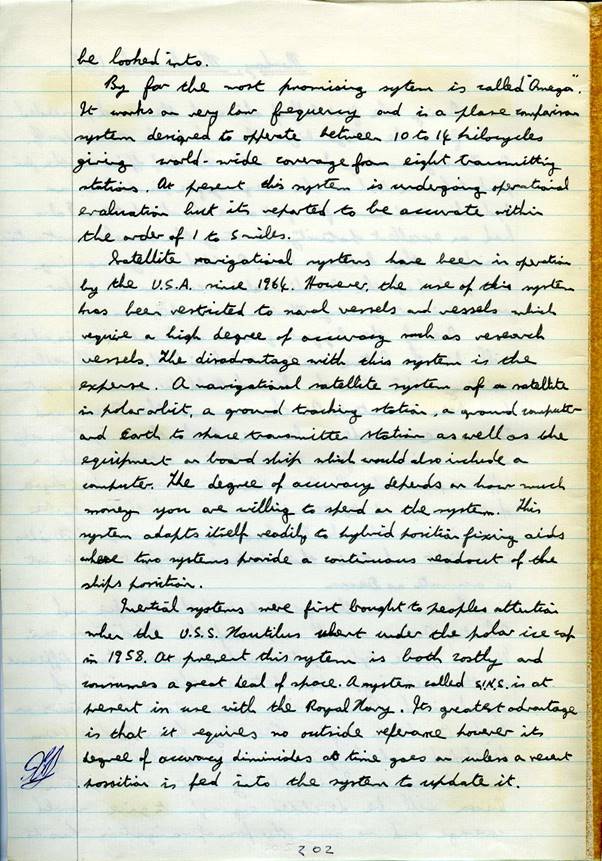 be looked into.
By far the most promising system is called "Omega".
It works on very low frequency and is a phase comparison
system designed to operate between 10 to 14 kilocycles
giving world-wide coverage from eight transmitting
stations. At present this system is undergoing operational
evaluation but its reported to be accurate within
the order of 1 to 5 miles.
Satellite navigational systems have been in operation
by the U.S.A. since 1964. However, the use of this system
has been restricted to naval vessels and vessels which
require a high degree of accuracy such as research
vessels. The disadvantage with this system is the
expense. A navigational satellite system of a satellite
in polar orbit, a ground tracking station, a ground computer
and Earth to space transmitter station as well as the
equipment on board ship which would also include a
computer. The degree of accuracy depends on how much
money you are willing to spend on the system. This
system adapts itself readily to hybrid position fixing aids
where two systems provide a continuous readout of the
ships position.
Inertial systems were first bought to peoples attention
when the U.S.S. Nautilus went under the polar ice cap
in 1958. At present this system is both costly and
consumes a great deal of space. A system called S.I.N.S. is at
present in use with the Royal Navy. Its greatest advantage
is that it requires no outside reference however its
degree of accuracy diminides as time goes on unless a recent
possition is fed into the system to update it.
202